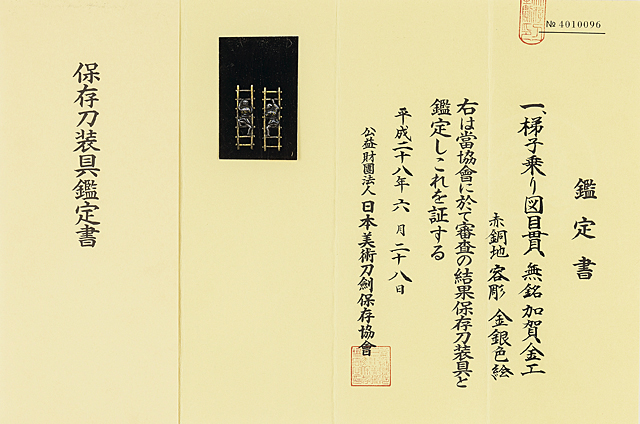 № 4010096
鑑定書
一、梯子乗り図目貫 無銘 加賀金工
赤銅地 容彫 金銀色絵
右は當協會に於て審査の結果保存刀装具と
鑑定しこれを証する
平成二十八年六月二十八日
公益財團法人 日本美術刀劍保存協會
保存刀装具鑑定書